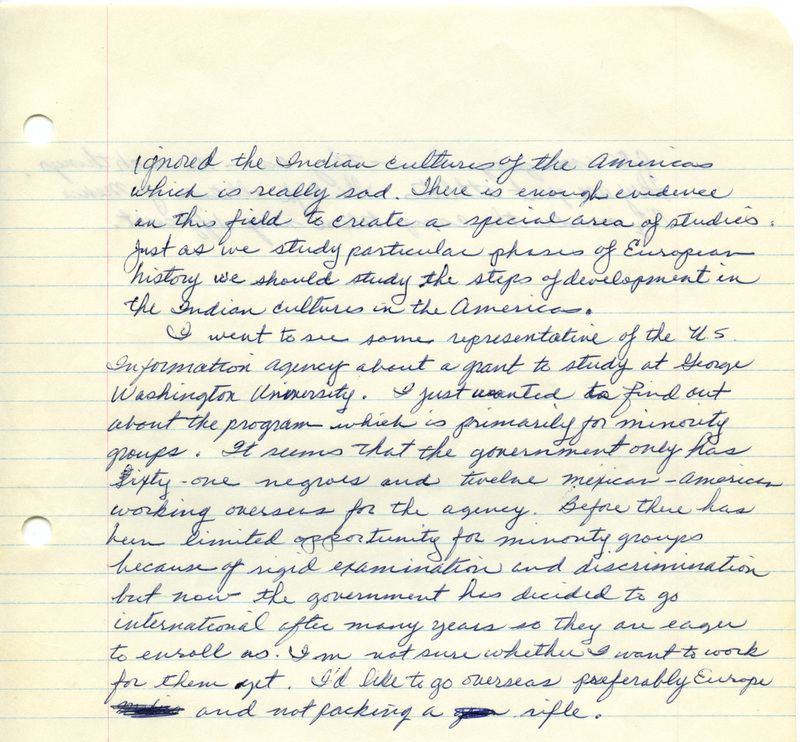 ignored the Indian cultures of the Americas
which is really sad. There is enough evidence
on this field to create a special area of studies.
Just as we study particular phases of European
history we should study the steps of development in
the Indian cultures in the Americas.
I went to see some representative of the U.S.
Information agency about a grant to study at George
Washington University. I just wanted to find out
about the program which is primarily for minority
groups. It seems that the government only has
sixty-one negroes and twelve mexican-American
working overseas for the agency. Before there has
been limited opportunity for minority groups
because of rigid examination and discrimination
but now the government has decided to go
international after many years so they are eager
to enroll us. I'm not sure whether I want to work
for them yet. I'd like to go overseas preferably Europe
and not packing a rifle.